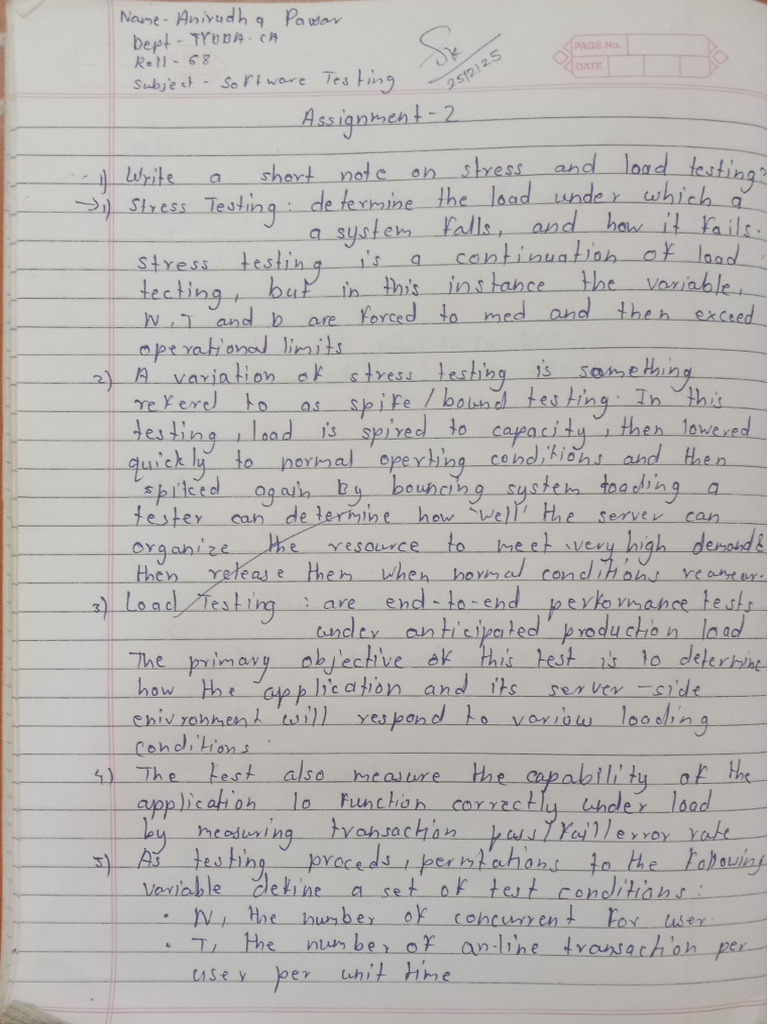 Name - Anirudh g Pawar
Dept - TYBBA-CA
Roll - 68
Subject - Software Testing
25/2/25
PAGE No.
DATE
Assignment - 2
1) Write a short note on stress and load testing?
→1) Stress Testing : determine the load under which a
a system falls, and how it fails.
stress testing is a continuation of load
tecting, but in this instance the variable,
N, T and D are forced to med and then exceed
operational limits
2) A variation of stress testing is something
referel to as spike / bound testing. In this
testing, load is spired to capacity, then lowered
quickly to normal operting conditions and then
spiked again By bouncing system loading a
tester can determine how 'well' the server can
organize the resource to meet very high demands
then release them when normal conditions
3) Load Testing : are end-to-end performance tests
under anticipated production load
The primary objective of this test is to determine
how the application and its server-side
enivronment will respond to various loading
conditions.
4) The test also measure the capability of the
application to function correctly under load
by measuring transaction pass/fail/error rate
5) As testing proceds, permtations to the following
variable define a set of test conditions :
• N, the number of concurrent for user
• T, the number of an-line transaction per
user per unit time